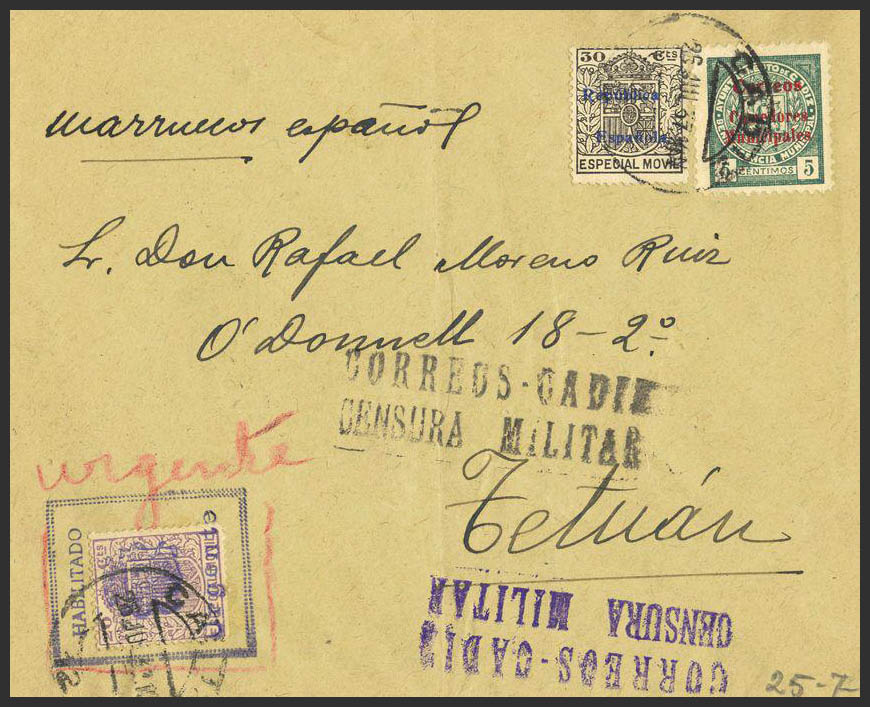 30 Cts
República
Española
ESPECIAL MOVIL
Correos
Corredores
Municipales
5 CENTIMOS 5
Marruecos español
Sr. Don Rafael Moreno Ruiz
O'Donnell 18-2º
CORREOS-CADIZ
CENSURA MILITAR
urgente
Tetuán
HABILITADO
CORREOS-CADIZ
CENSURA MILITAR
25-7